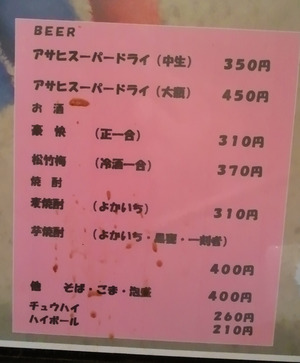 BEER
アサヒスーパードライ（中生） 350円
アサヒスーパードライ（大瓶） 450円
お酒
豪快 （正一合） 310円
松竹梅 （冷酒一合） 370円
焼酎
麦焼酎 （よかいち） 310円
芋焼酎 （よかいち・黒霧・一刻者）
400円
他 そば・ごま・泡盛 400円
チュウハイ 260円
ハイボール 210円